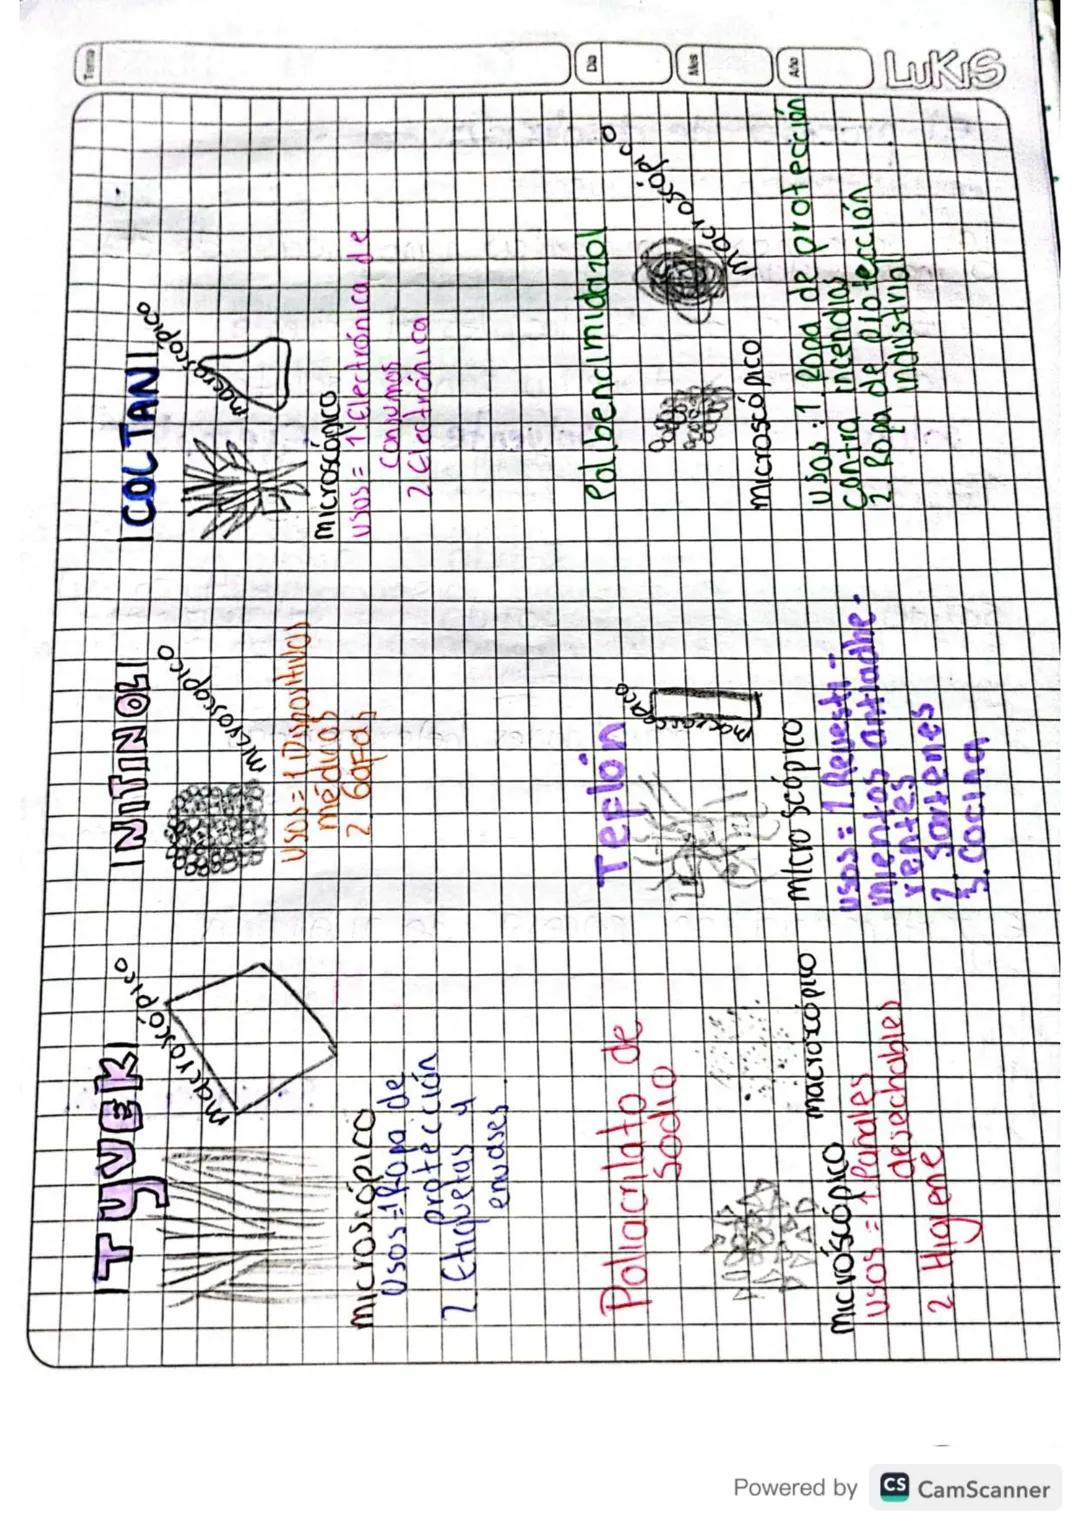 Tema
Dia
Mes
Año
LUKIS
TYVEK
macroscópico
microscópico
Usos = 1 Ropa de
protección
2 Etiquetas y
envases
NITINOL
microscopico
usos = 1 Dispositivos
médicos
2 Gafas
COLTAN
macroscópico
microscópico
usos = 1 Electrónica de
consumos
2 Electrónica
Poliacrilato de
sodio
microscópico
macroscópico
usos = 1 Pañales
desechables
2 Higiene
Teflon
macroscopico
microscópico
usos = 1. Revesti-
mientos antiadhe-
rentes
2. Sartenes
3. Cocina
Polibencimidazol
macroscópico
microscópico
usos: 1. Ropa de protección
contra incendios
2. Ropa de protección
industrial
Powered by CS CamScanner